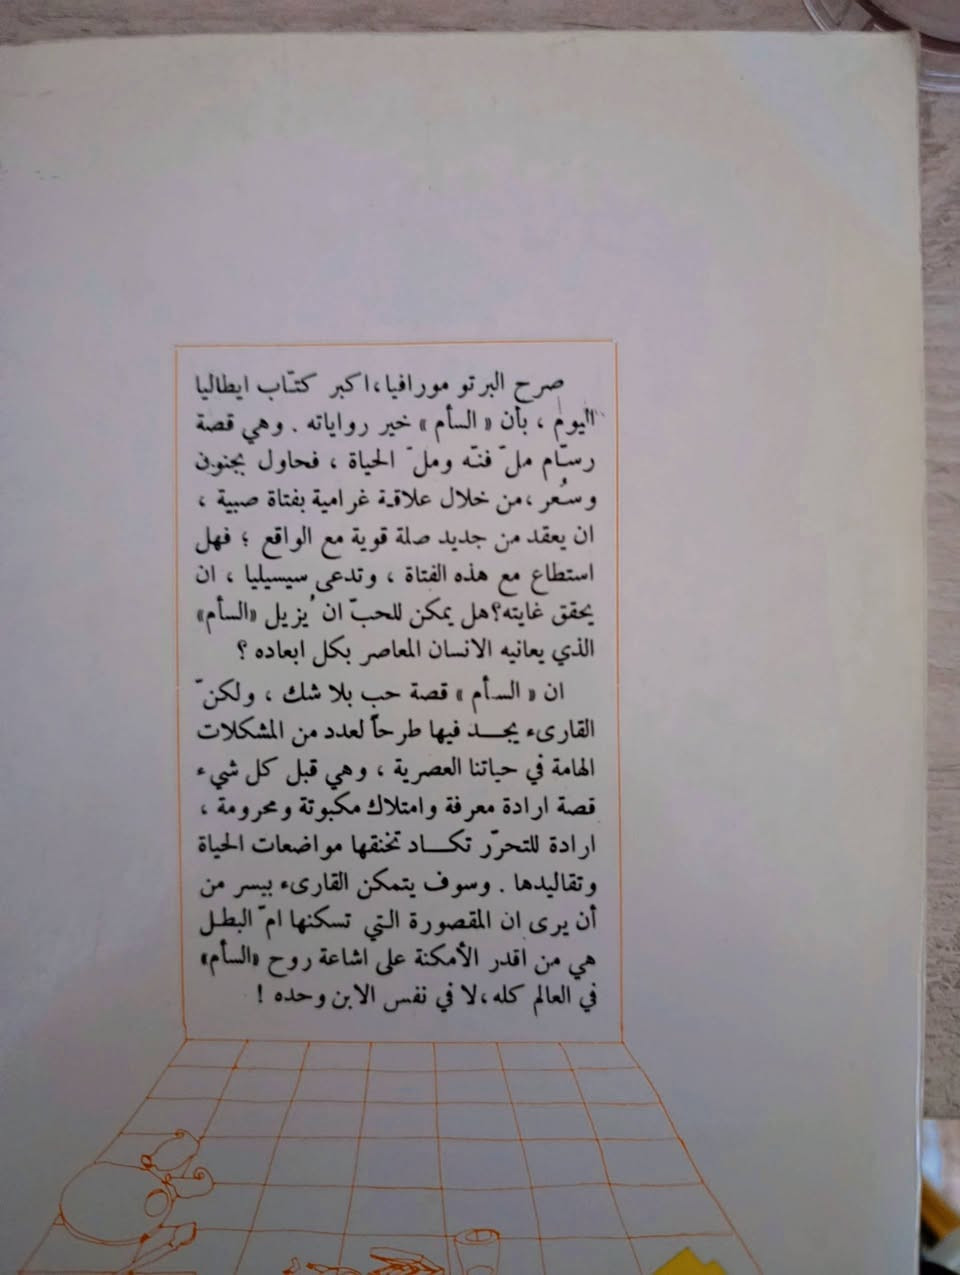 صرح البرتو مورافيا، اكبر كتّاب ايطاليا
اليوم ، بأن « السأم » خير رواياته . وهي قصة
رسّام ملّ فنّه وملّ الحياة ، فحاول بجنون
وسُعر ، من خلال علاقة غرامية بفتاة صبية ،
ان يعقد من جديد صلة قوية مع الواقع ؛ فهل
استطاع مع هذه الفتاة ، وتدعى سيسيليا ، ان
يحقق غايته؟ هل يمكن للحبّ ان يُزيل «السأم»
الذي يعانيه الانسان المعاصر بكل ابعاده ؟
ان « السأم » قصة حب بلا شك ، ولكنّ
القارىء يجـــد فيها طرحاً لعدد من المشكلات
الهامة في حياتنا العصرية ، وهي قبل كل شيء
قصة ارادة معرفة وامتلاك مكبوتة ومحرومة ،
ارادة للتحرّر تكـــاد تخنقها مواضعات الحياة
وتقاليدها . وسوف يتمكن القارىء بيسر من
أن يرى ان المقصورة التي تسكنها امّ البطل
هي من اقدر الأمكنة على اشاعة روح «السأم»
في العالم كله ، لا في نفس الابن وحده !